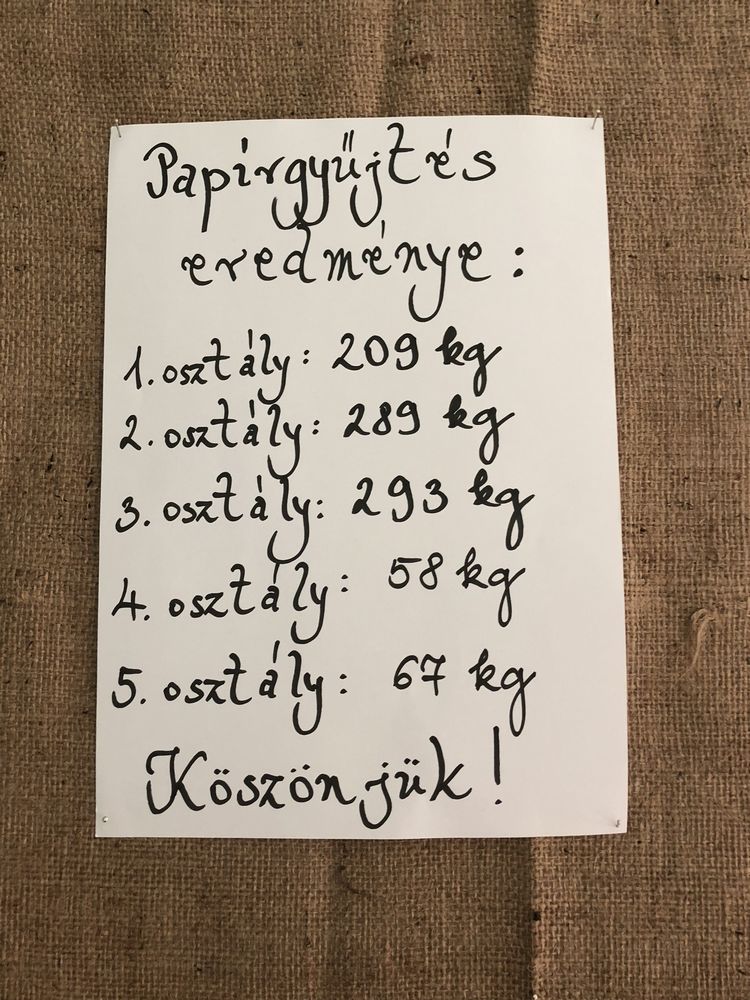 Papírgyűjtés
eredménye:
1. osztály: 209 kg
2. osztály: 289 kg
3. osztály: 293 kg
4. osztály: 58 kg
5. osztály: 67 kg
Köszönjük!